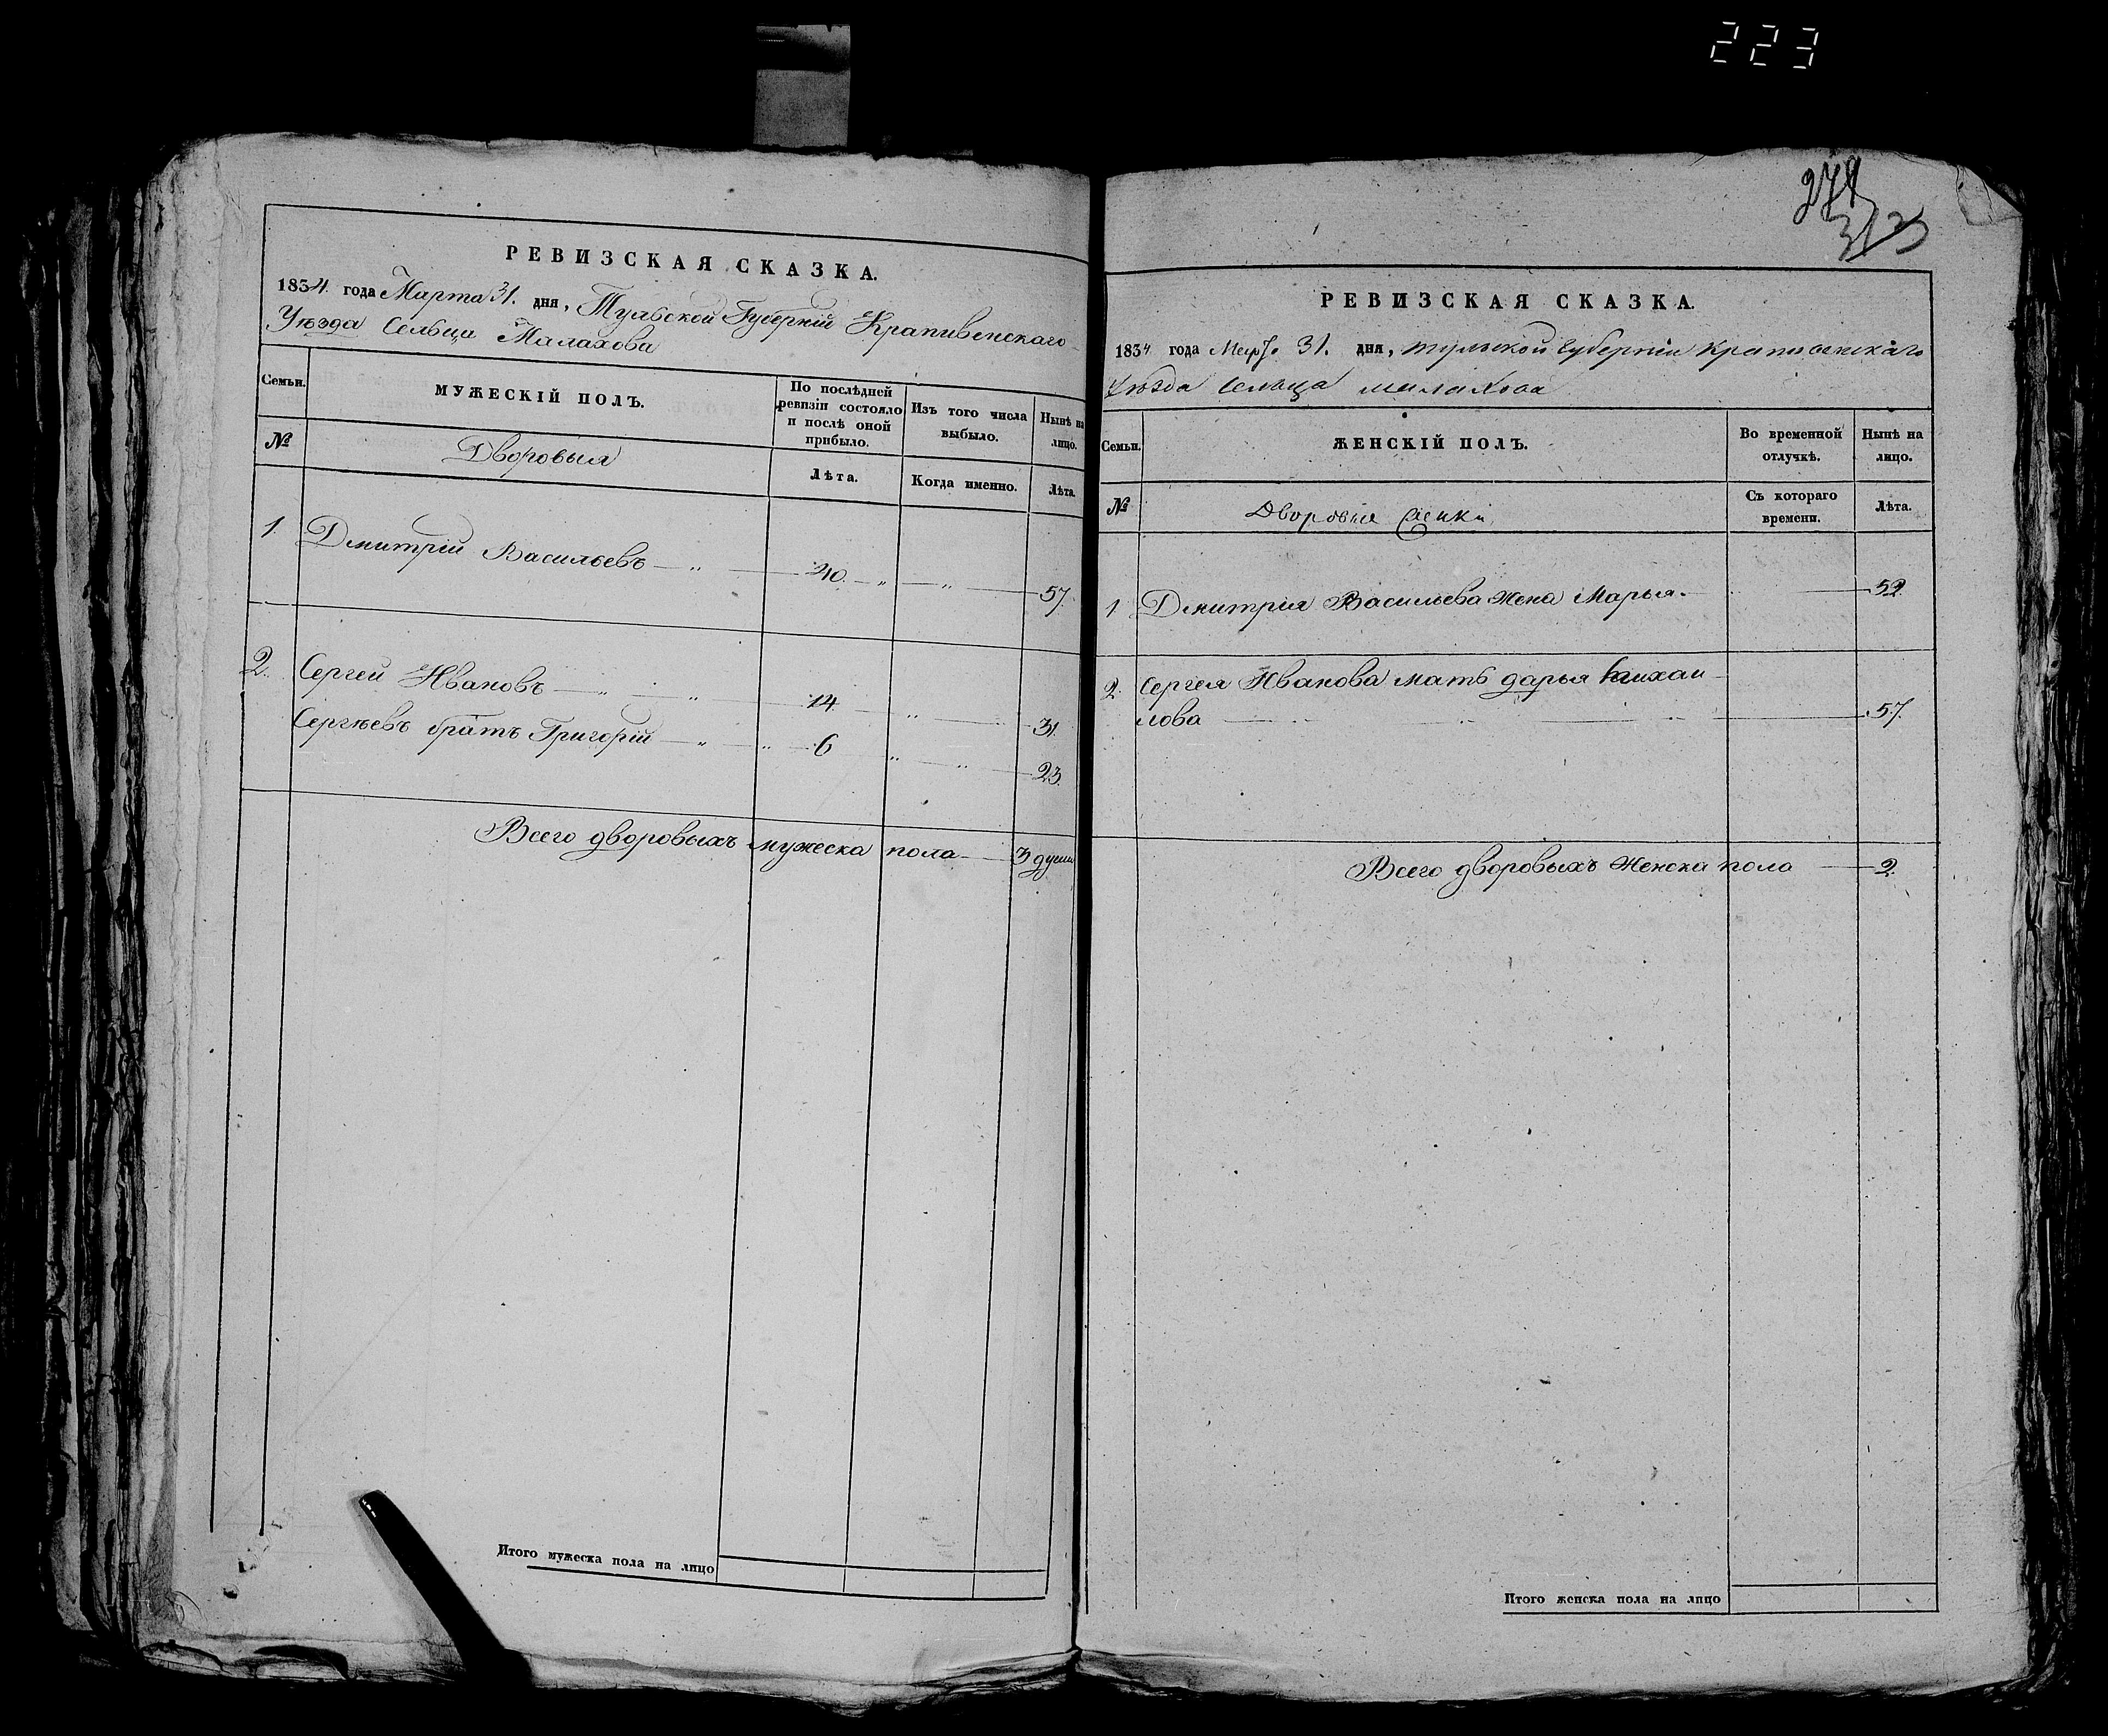 223
РЕВИЗСКАЯ СКАЗКА.
1834. года Марта 31. дня, Тульской Губерніи Крапивенскаго
Уѣзда Сельца Малахова
Семьи.
МУЖЕСКІЙ ПОЛЪ.
По послѣдней ревизіи состояло и послѣ оной прибыло.
Изъ того числа выбыло.
Нынѣ на лицо.
№
Дворовыя
Лѣта.
Когда именно.
Лѣта.
1. Дмитрій Васильевъ — " — 40. — " — " — 57.
2. Сергей Ивановъ — " — " — 14 — " — 31.
Сергѣевъ братъ Григорій — " — " — 6 " — " — 23.
Всего дворовыхъ мужеска пола — 3 души
Итого мужеска пола на лицо
РЕВИЗСКАЯ СКАЗКА.
1834 года 31. дня, тульской Губерніи Крапивенскаго
Уѣзда Сельца малахова
Семьи.
ЖЕНСКІЙ ПОЛЪ.
Во временной отлучкѣ.
Нынѣ на лицо.
№
Дворовыя
Съ котораго времени.
Лѣта.
1 Дмитрія Васильева жена Марья — 52
2. Сергея Иванова мать дарья михаи-
лова — 57.
Всего дворовыхъ женска пола — 2.
Итого женска пола на лицо